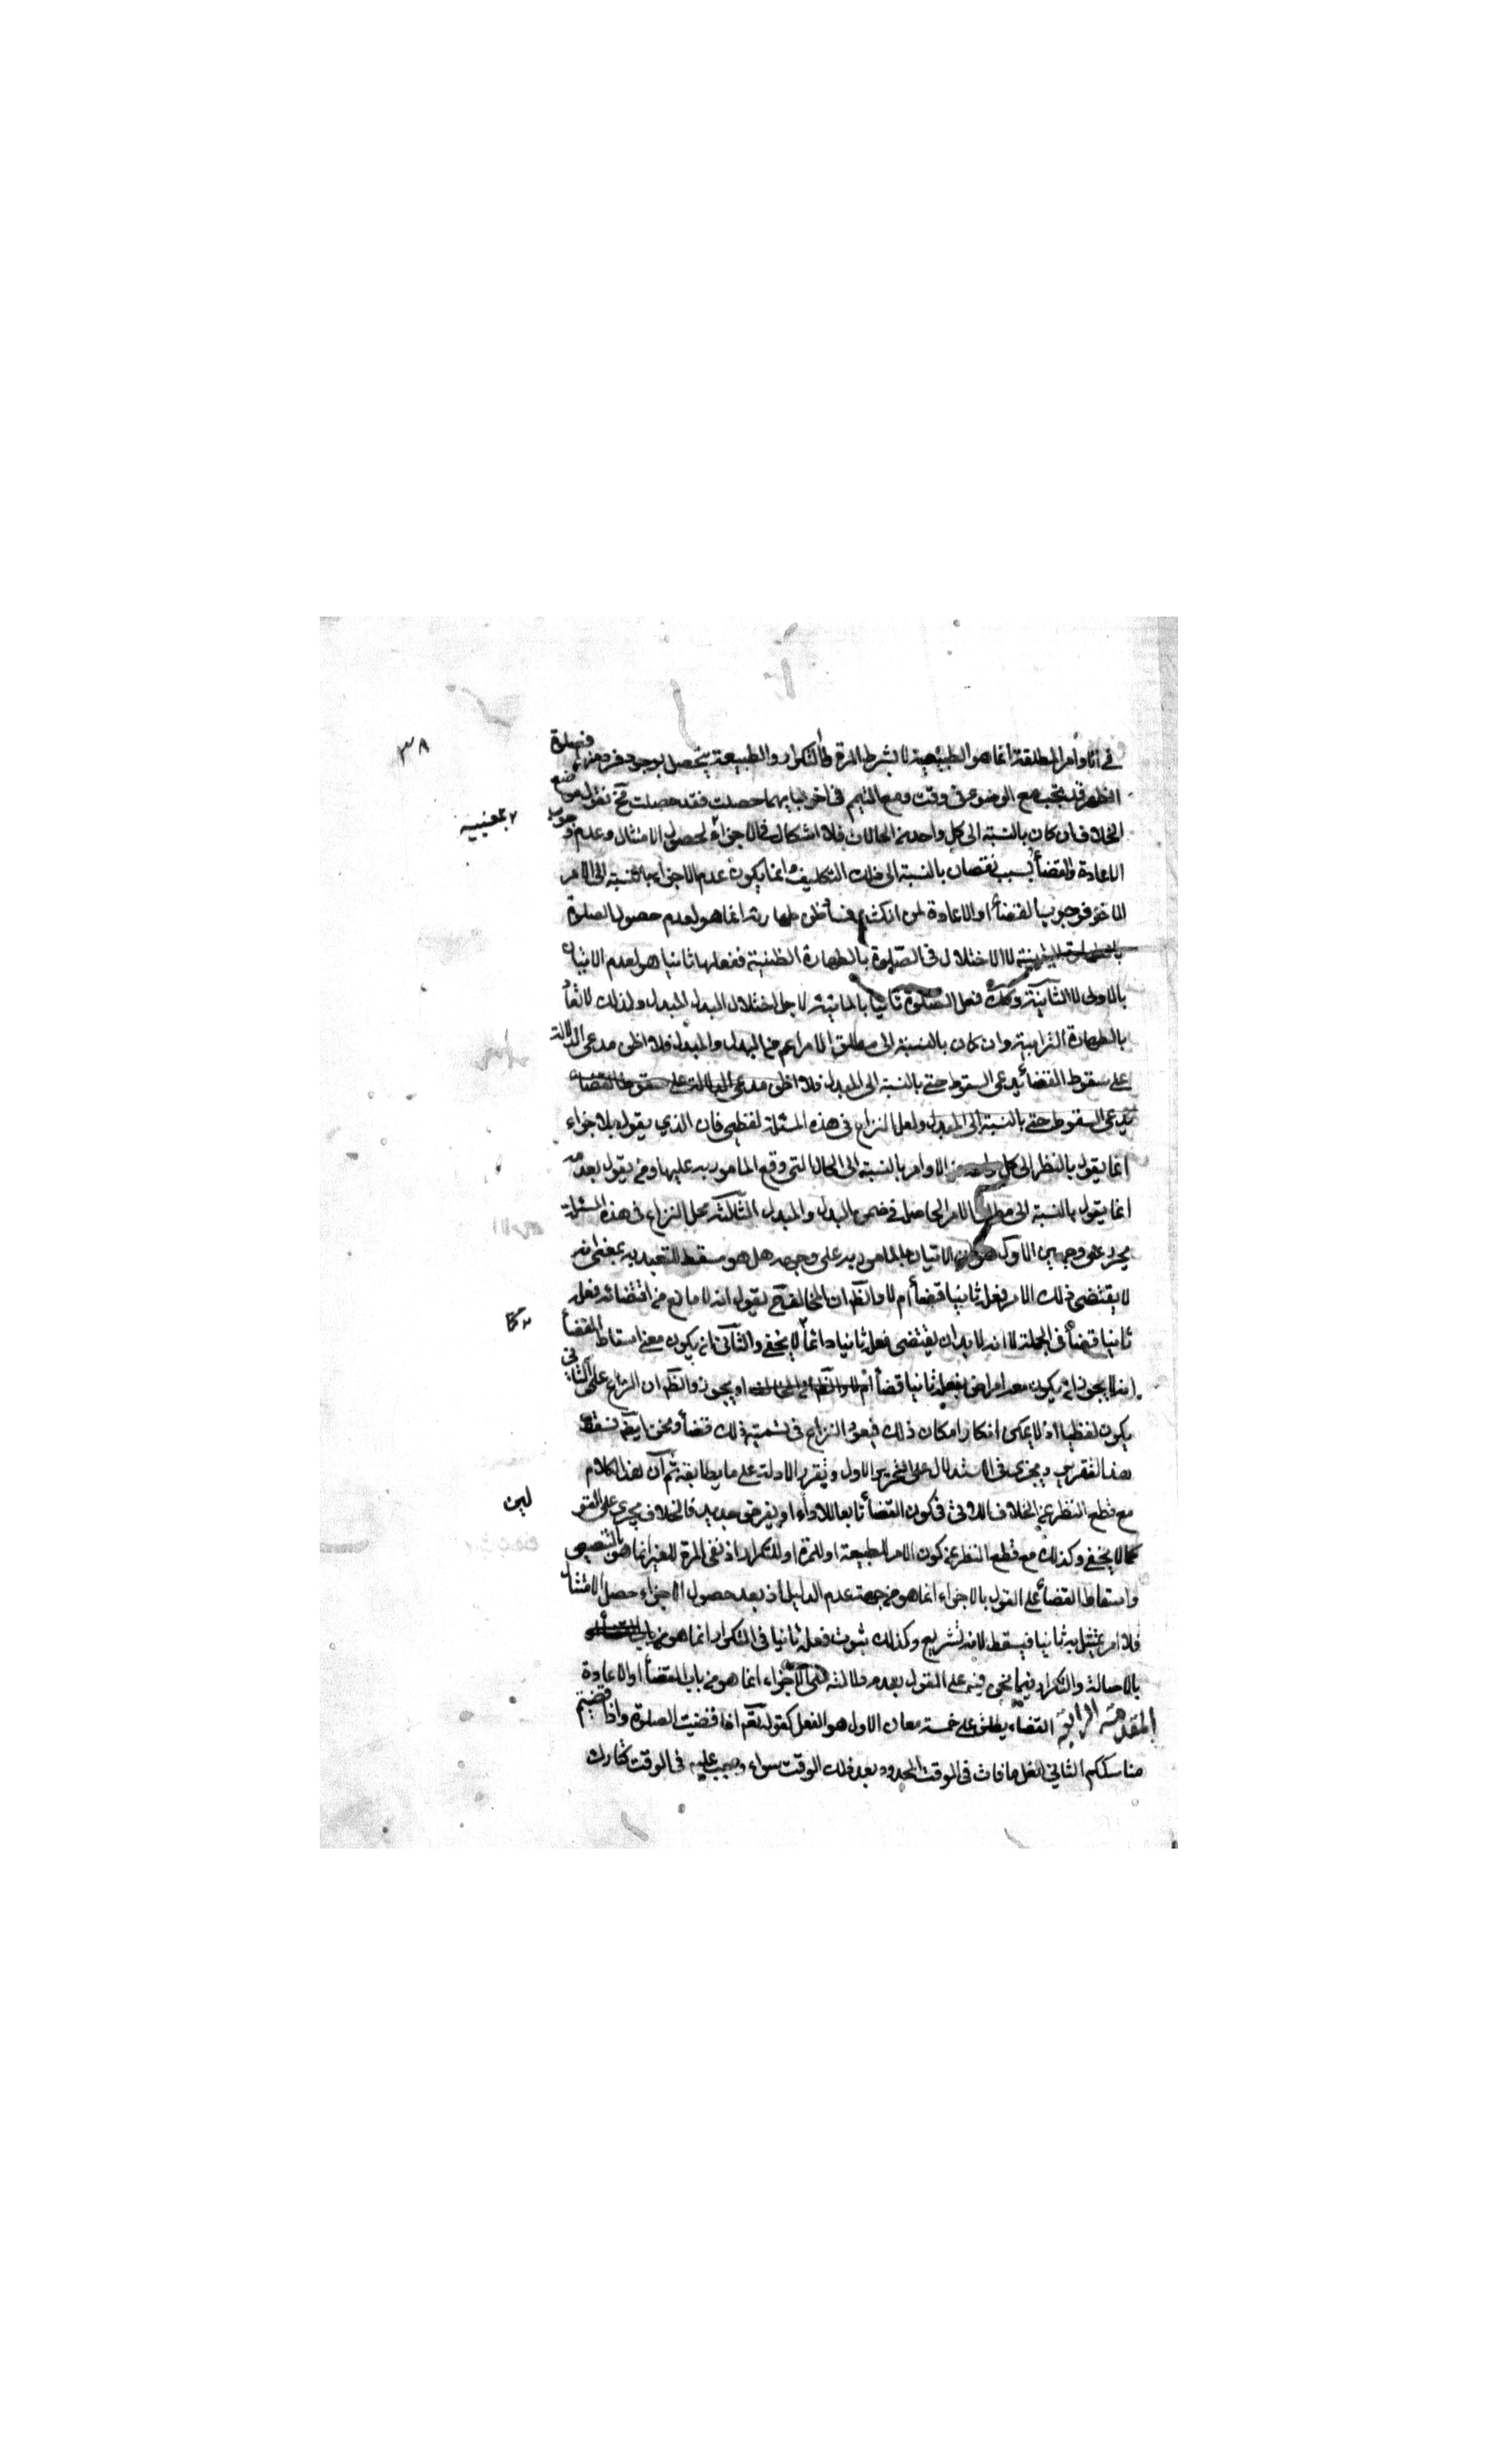 ٣٨
في الاوامر المطلقة انما هو الطبيعة لا بشرط المرة ولا التكرار والطبيعة يتحصل بوجود فرد منها فصلوة
الظهر قد يجب مع الوضوء في وقت ومع التيمم في اخر فبايهما حصلت فقد حصلت فح نقول موضع
الخلاف ان كان بالنسبة الى كل واحد من الحالات فلا اشكال في الاجزاء لحصول الامتثال وعدم وجوب
٢ بمعنييه
الاعادة والقضأ بسبب نقصان بالنسبة الى ذلك التكليف وانما يكون عدم الاجزاء بالنسبة الى الامر
الاخر فوجوب القضأ او الاعادة لمن انكشف فساد ظن طهارته انما هو لعدم حصول الصلوة
بالطهارة اليقينية لا لاختلال في الصلوة بالطهارة الظنية ففعلها ثانيا هو لعدم الاتيان
بالاولى لا الثانية وكك فعل الصلوة ثانيا بالمائية لاجل اختلال المبدل ولذلك لا
بالطهارة الترابية وان كان بالنسبة الى مطلق الامر اعم من البدل والمبدل فلا اظن مدعي الدلالة
على سقوط القضأ يدعي السقوط حتى بالنسبة الى المبدل فلا اظن مدعي الدلالة على سقوط القضاء
يدعي السقوط حتى بالنسبة الى المبدل ولعل النزاع في هذه المسئلة لفظي فان الذي يقول بالاجزاء
انما يقول بالنظر الى كل واحد من الاوامر بالنسبة الى الحال التي وقع المامور به عليها ومن يقول بعدمه
انما يقول بالنسبة الى مطلق الامر الحاصل في ضمن البدل والمبدل الثالثة محل النزاع في هذه المسئلة
يحرر على وجهين الاول هو ان الاتيان بالمامور به على وجهه هل هو مسقط للتعبد به بمعنى انه
لا يقتضي ذلك الامر فعله ثانيا قضأ ام لا والظ ان المخالف ح يقول انه لا مانع من اقتضائه فعله
ثانيا قضأ في الجملة لا انه لا بد ان يقتضي فعله ثانيا دائما لا يخفى والثاني انه يكون معنى اسقاط القضأ
٢ كما
انه لا يجوز ان يكون معه امر اخر بفعله ثانيا قضأ ام لا او يجوز والظ ان النزاع على الثاني
يكون لفظيا اذ لا يمكن انكار امكان ذلك فيعود النزاع في تسمية ذلك قضأ ونحن ايض نسقط
هذا التقرير ويجري في الاستدلال على التحرير الاول ونقرر الادلة على ما يطابقه ثم ان هذا الكلام
مع قطع النظر عن الخلاف الاتي في كون القضأ تابعا للاداء او بفرض جديد فالخلاف يجري على القو
لين
كما لا يخفى وكذلك مع قطع النظر عن كون الامر للطبيعة او للمرة او للتكرار اذ نفي المرة للغير انما هو بالتنصيص
واسقاط القضأ على القول بالاجزاء انما هو من جهة عدم الدليل اذ بعد حصول الاجزاء حصل الامتثال
فلا امر يمتثل به ثانيا فيسقط لانه تشريع وكذلك ثبوت فعله ثانيا في التكرار انما هو
بالاصالة والتكرار فيما نحن فيه على القول بعدم دلالته على الاجزاء انما هو من باب القضأ او الاعادة
المقدمة الرابعة القضاء يطلق على خمسة معان الاول هو الفعل كقوله تعم اذا قضيت الصلوة واذا قضيتم
مناسككم الثاني فعل ما فات في الوقت المحدود بعد ذلك الوقت سواء وجب عليه في الوقت كتارك